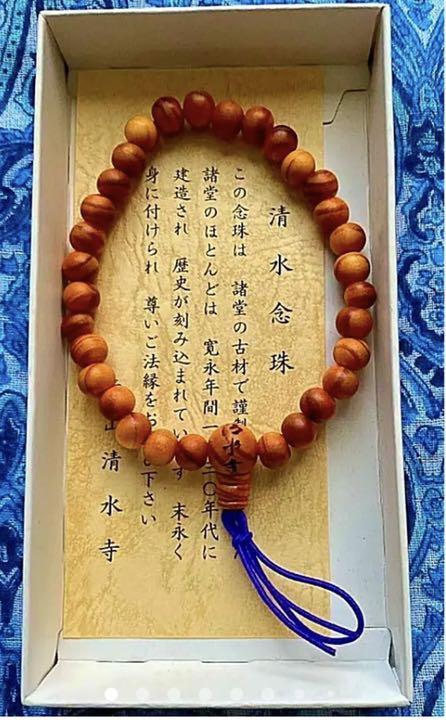 清水念珠
この念珠は 諸堂の古材で謹製
諸堂のほとんどは 寛永年間 一 二〇年代に
建造され 歴史が刻み込まれてい す 末永く
身に付けられ 尊いご法縁をお 下さい
山清水寺
清水寺